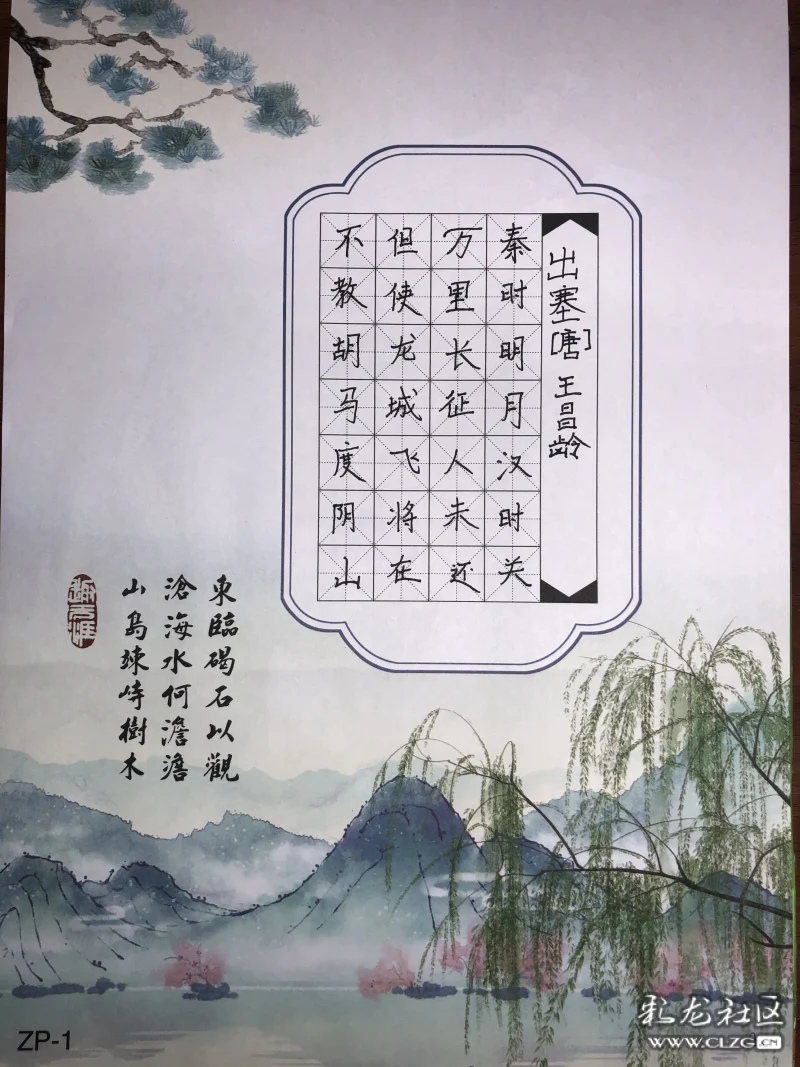 出塞[唐] 王昌龄
秦时明月汉时关
万里长征人未还
但使龙城飞将在
不教胡马度阴山
東臨碣石以觀
滄海水何澹澹
山島竦峙樹木
ZP-1
彩龙社区
WWW.CLZG.CN